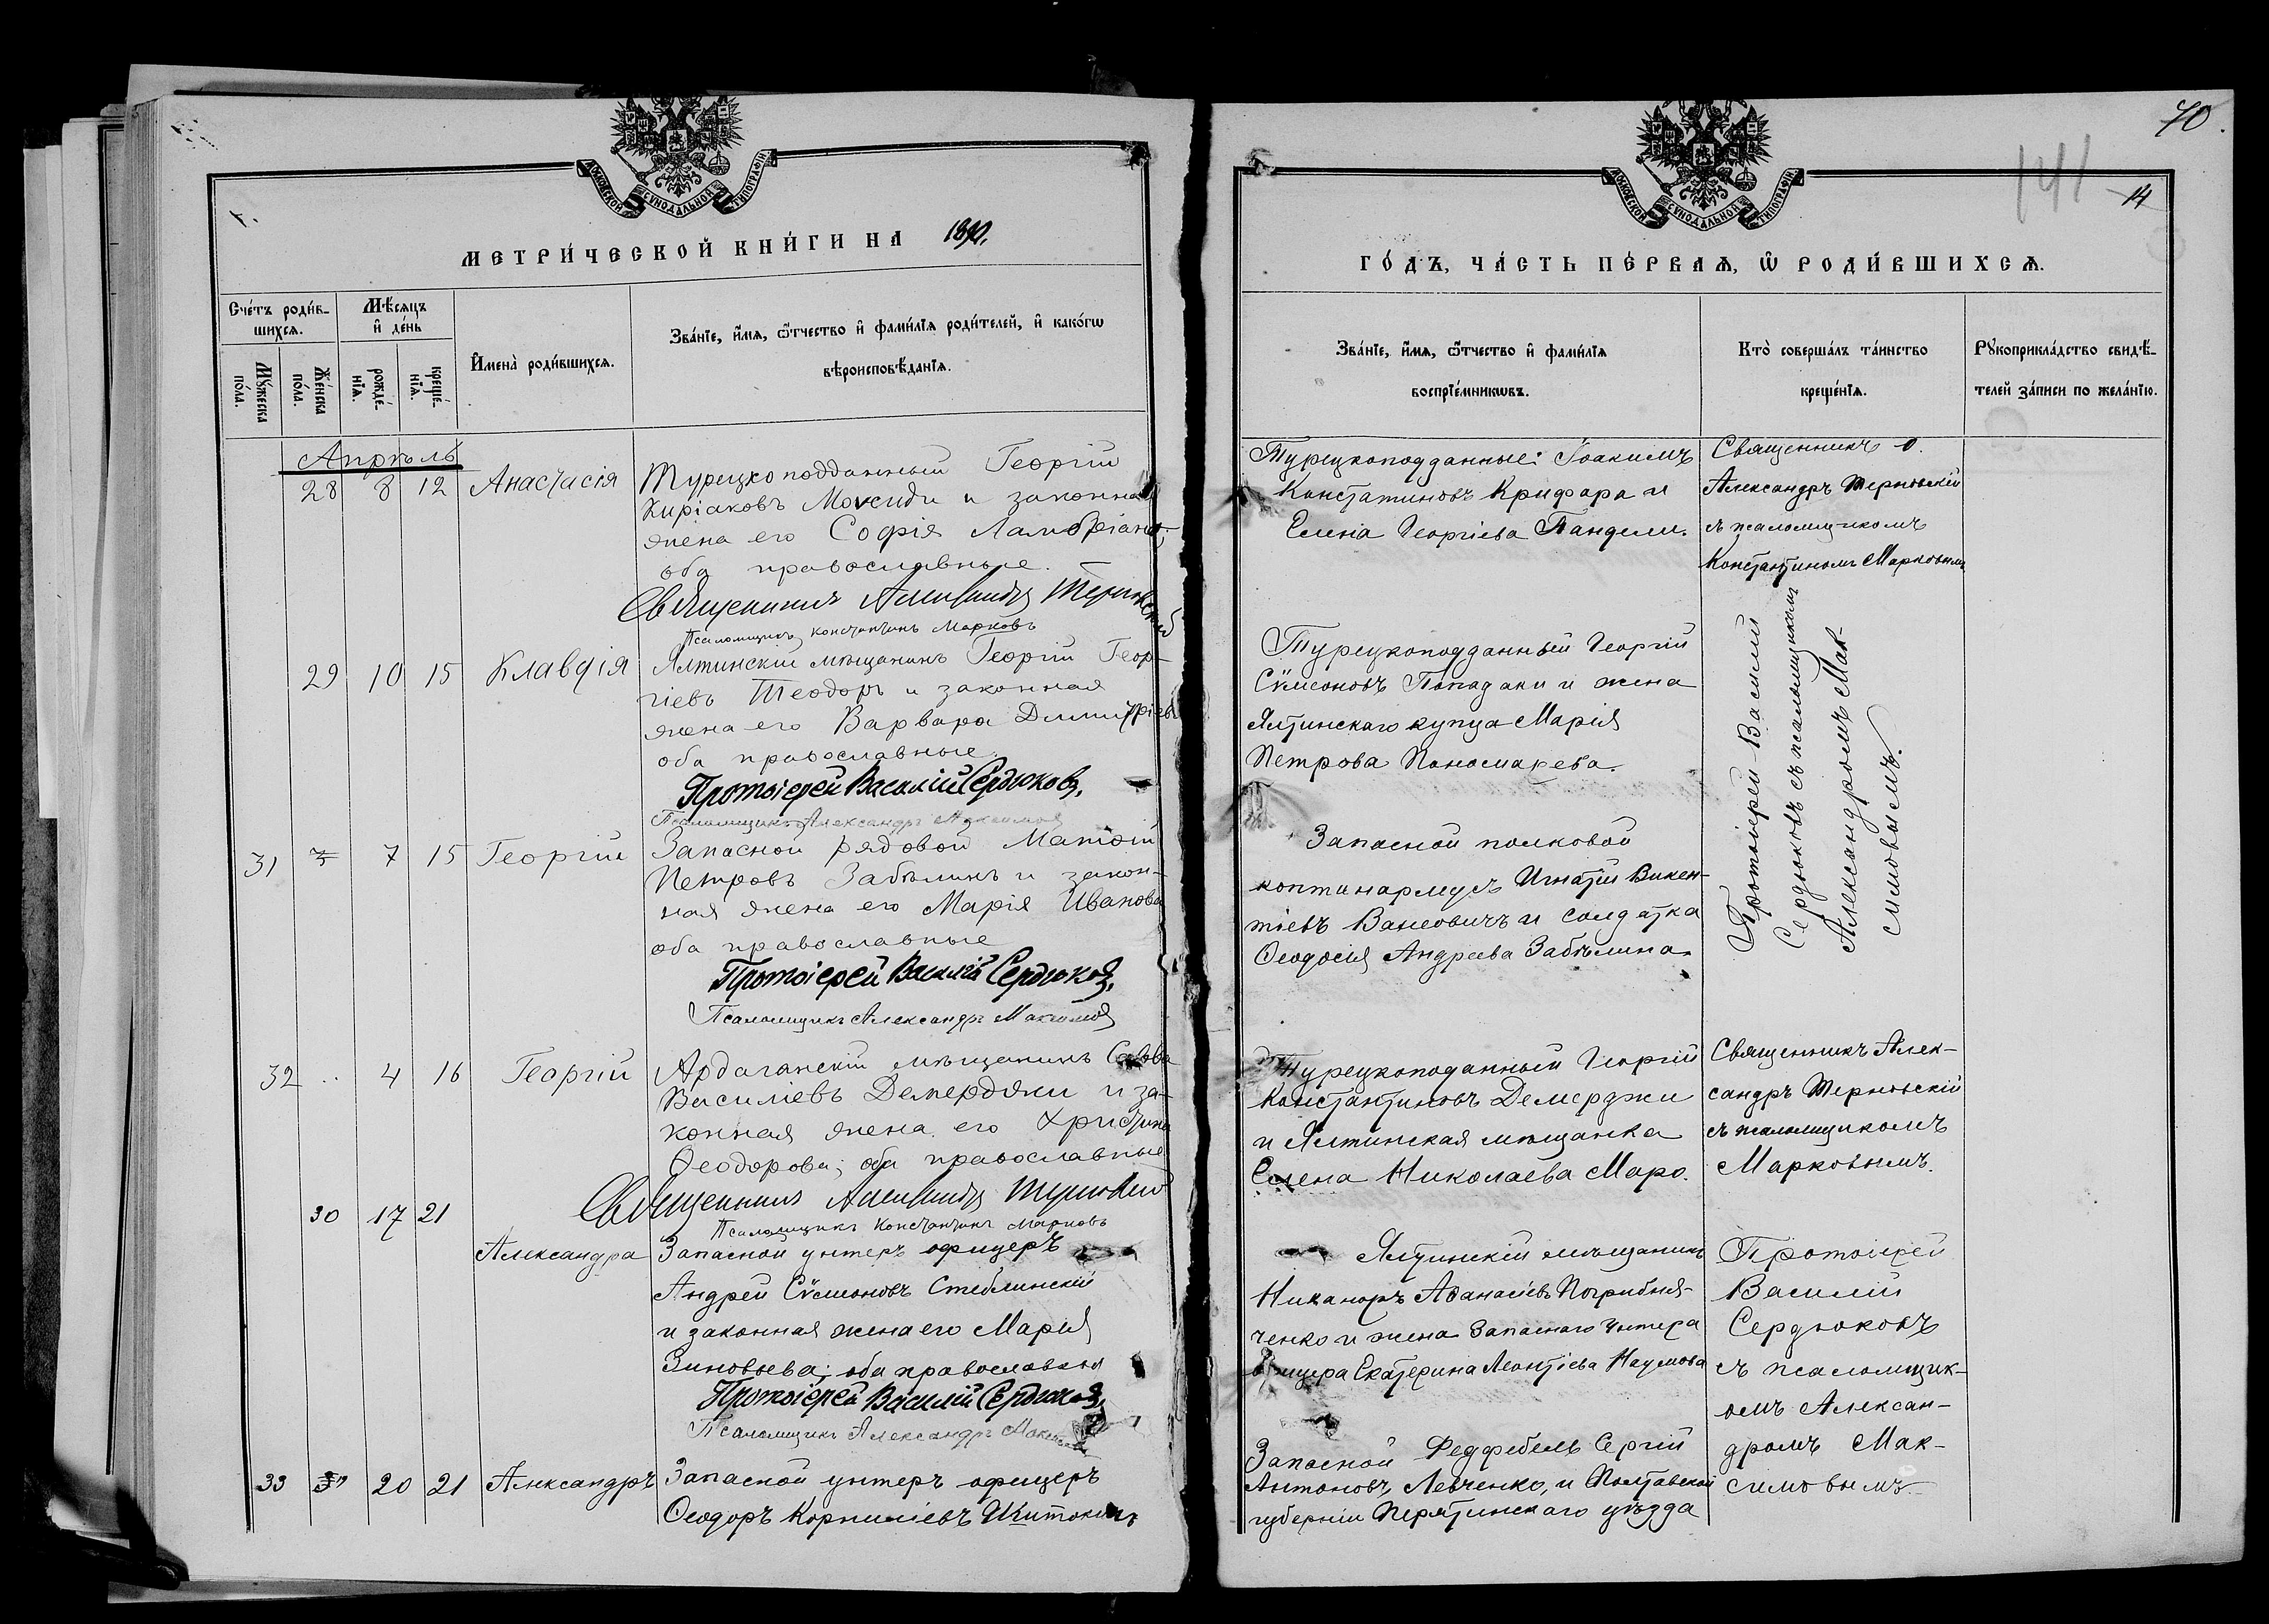 70.
141
14
МОСКОВСКОЙ СѴНОДАЛЬНОЙ ТИПОГРАФІИ
МЕТРИ́ЧЕСКОЙ КНИ́ГИ НА 1890.
Сче́тъ роди́в-
шихсѧ.
Мѣ́сѧцъ
и҆ де́нь
Мꙋ́жеска
по́ла.
Же́нска
по́ла.
рожде́-
нїѧ.
креще́-
нїѧ.
И҆мена̀ роди́вшихсѧ.
Зва́нїе, и҆́мѧ, ѻ҆́тчество и҆ фами́лїѧ роди́телей, и҆ како́гѡ
вѣроисповѣ́данїѧ.
Апрѣль
28 8 12 Анастасія
Турецкоподданный Георгій
Киріаковъ Моксиди и законная
жена его Софія Ламбріано,
оба православные.
Священникъ Александръ Терновскій
Псаломщикъ Константинъ Марковъ
29 10 15 Клавдія
Ялтинскій мѣщанинъ Георгій Геор-
гіевъ Теодоръ и законная
жена его Варвара Димитріева
оба православные
Протоіерей Василій Сердюковъ.
Псаломщикъ Александръ Максимовъ
31 7 15 Георгій
Запасной рядовой Матѳій
Петровъ Забѣлинъ и закон-
ная жена его Марія Иванова
оба православные
Протоіерей Василій Сердюковъ.
Псаломщикъ Александръ Максимовъ
32 .. 4 16 Георгій
Ардаганскій мѣщанинъ Савва
Василіевъ Демерджи и за-
конная жена его Христина
Ѳеодорова; оба православные
Священникъ Александръ Терновскій
Псаломщикъ Константинъ Марковъ
30 17 21
Александра
Запасной унтеръ офицеръ
Андрей Сѵмеоновъ Стеблинскій
и законная жена его Марія
Зиновьева; оба православныя
Протоіерей Василій Сердюковъ.
Псаломщикъ Александръ Максимовъ
33 20 21 Александръ
Запасной унтеръ офицеръ
Ѳеодоръ Корниліевъ Шитокинъ
МОСКОВСКОЙ СѴНОДАЛЬНОЙ ТИПОГРАФІИ
ГО́ДЪ, ЧА́СТЬ ПЕ́РВАѦ, Ѡ҆ РОДИ́ВШИХСѦ.
Зва́нїе, и҆́мѧ, ѻ҆́тчество и҆ фами́лїѧ
воспрїе́мникѡвъ.
Кто̀ соверша́лъ та́инство
креще́нїѧ.
Рꙋкоприкла́дство свидѣ́-
телей за́писи по жела́нїю.
Турецкоподданные: Іоакимъ
Констатиновъ Крифара и
Елена Георгіева Пандели.
Священникъ о.
Александръ Терновскій
съ псаломщикомъ
Константиномъ Марковымъ
Турецкоподданный Георгій
Сѵмеоновъ Пападаки и жена
Ялтинскаго купца Марія
Петрова Пономарева.
Запасной полковой
коптинармусъ Игнатій Викен-
тіевъ Ванеовичъ и солдатка
Ѳеодосія Андреева Забѣлина
Протоіерей Василій
Сердюковъ съ псаломщикомъ
Александромъ Мак-
симовымъ.
Турецкоподанный Георгій
Константиновъ Демерджи
и Ялтинская мѣщанка
Елена Николаева Маро.
Священникъ Алек-
сандръ Терновскій
съ псаломщикомъ
Марковымъ.
Ялтинскій мѣщанинъ
Никаноръ Аѳанасіевъ Погрибня-
ченко и жена Запаснаго Унтера
офицера Екатерина Леонтіева Наумова
Протоіерей
Василій
Сердюковъ
съ псаломщик-
омъ Алексан-
дромъ Мак-
симовымъ
Запасной Федфебель Сергій
Антоновъ Левченко, и Полтавской
губерніи Пирятинскаго уѣзда